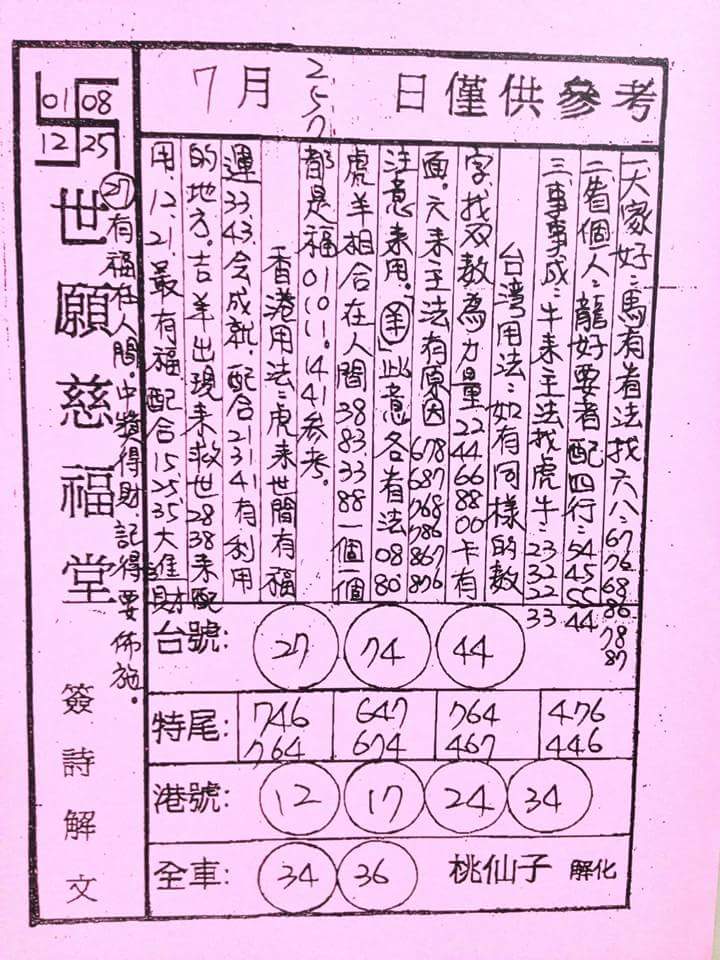 7月 25.27 日僅供參考
一大家好:馬有着法找六八:67 76 68 86 78 87
二看個人:龍好要者配四行:54 45 55 44
三事事成:牛來主法找虎牛:23 32 22 33
台湾用法:如有同様的数
字,找双数為力量22 44 66 88 00卡有
面。六來主法有原因678 687 768 786 867 876
注意來用。羊此意各有法08 80
虎羊相合在人間38 83.33 88一個一個
都是福01 10 11. 14 41参考。
香港用法:虎來世間有福
運33.43.会成就.配合21 31 41有利用
的地方。吉羊出現來救世28 38來配
用.12.21.最有福配合15 25 35大進財
01 08
12 25
世願慈福堂
簽詩解文
27有福在人間。中獎得財記得要佈施。
台號: 27 74 44
特尾: 746 647 764 476
764 674 467 446
港號: 12 17 24 34
全車: 34 36 桃仙子 解化